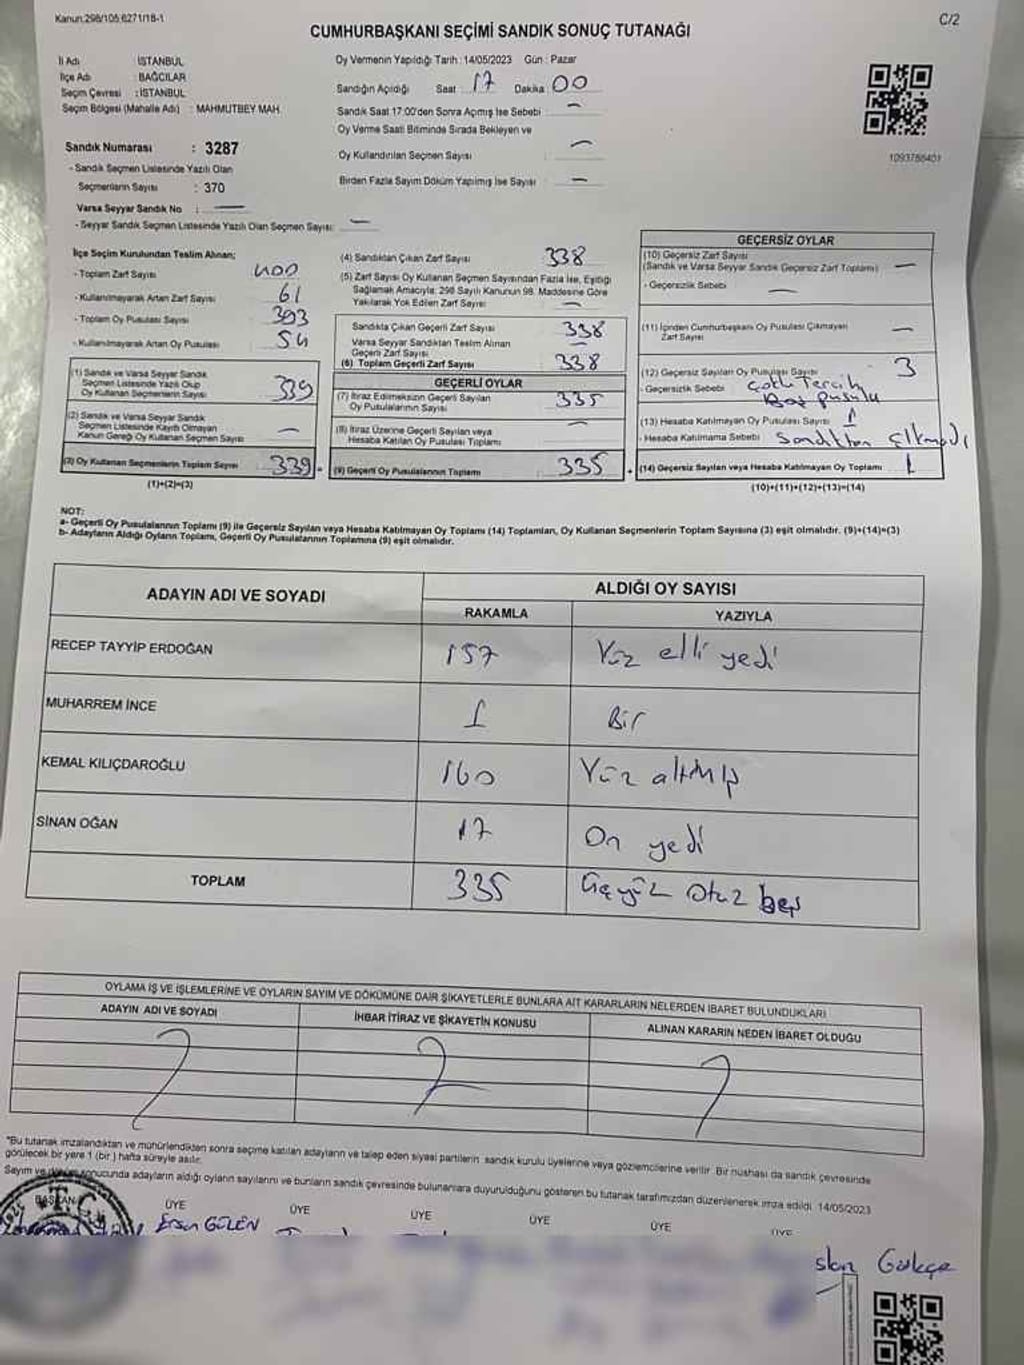 Kanun:298/105;6271/18-1
C/2
CUMHURBAŞKANI SEÇİMİ SANDIK SONUÇ TUTANAĞI
İl Adı : İSTANBUL
İlçe Adı : BAĞCILAR
Seçim Çevresi : İSTANBUL
Seçim Bölgesi (Mahalle Adı) : MAHMUTBEY MAH.
Sandık Numarası : 3287
- Sandık Seçmen Listesinde Yazılı Olan
Seçmenlerin Sayısı : 370
Varsa Seyyar Sandık No : —
- Seyyar Sandık Seçmen Listesinde Yazılı Olan Seçmen Sayısı: —
Oy Vermenin Yapıldığı Tarih : 14/05/2023 Gün : Pazar
Sandığın Açıldığı Saat 17 Dakika 00
Sandık Saat 17:00'den Sonra Açmış İse Sebebi : —
Oy Verme Saati Bitiminde Sırada Bekleyen ve
Oy Kullandırılan Seçmen Sayısı : —
Birden Fazla Sayım Döküm Yapılmış İse Sayısı : —
1093786401
İlçe Seçim Kurulundan Teslim Alınan;
- Toplam Zarf Sayısı 400
- Kullanılmayarak Artan Zarf Sayısı 61
- Toplam Oy Pusulası Sayısı 393
- Kullanılmayarak Artan Oy Pusulası 54
(1) Sandık ve Varsa Seyyar Sandık
Seçmen Listesinde Yazılı Olup
Oy Kullanan Seçmenlerin Sayısı 339
(2) Sandık ve Varsa Seyyar Sandık
Seçmen Listesinde Kayıtlı Olmayan
Kanun Gereği Oy Kullanan Seçmen Sayısı —
(3) Oy Kullanan Seçmenlerin Toplam Sayısı 339 =
(1)+(2)=(3)
(4) Sandıktan Çıkan Zarf Sayısı 338
(5) Zarf Sayısı Oy Kullanan Seçmen Sayısından Fazla İse, Eşitliği
Sağlamak Amacıyla; 298 Sayılı Kanunun 98. Maddesine Göre
Yakılarak Yok Edilen Zarf Sayısı —
Sandıkta Çıkan Geçerli Zarf Sayısı 338
Varsa Seyyar Sandıktan Teslim Alınan
Geçerli Zarf Sayısı —
(6) Toplam Geçerli Zarf Sayısı 338
GEÇERLİ OYLAR
(7) İtiraz Edilmeksizin Geçerli Sayılan
Oy Pusulalarının Sayısı 335
(8) İtiraz Üzerine Geçerli Sayılan veya
Hesaba Katılan Oy Pusulası Toplamı —
(9) Geçerli Oy Pusulalarının Toplamı 335 +
GEÇERSİZ OYLAR
(10) Geçersiz Zarf Sayısı
(Sandık ve Varsa Seyyar Sandık Geçersiz Zarf Toplamı) —
- Geçersizlik Sebebi —
(11) İçinden Cumhurbaşkanı Oy Pusulası Çıkmayan
Zarf Sayısı —
(12) Geçersiz Sayılan Oy Pusulası Sayısı 3
- Geçersizlik Sebebi : Çoklu Tercih
Boş pusula
(13) Hesaba Katılmayan Oy Pusulası Sayısı 1
- Hesaba Katılmama Sebebi : Sandıktan Çıkmadı
(14) Geçersiz Sayılan veya Hesaba Katılmayan Oy Toplamı 1
(10)+(11)+(12)+(13)=(14)
NOT:
a- Geçerli Oy Pusulalarının Toplamı (9) ile Geçersiz Sayılan veya Hesaba Katılmayan Oy Toplamı (14) Toplamları, Oy Kullanan Seçmenlerin Toplam Sayısına (3) eşit olmalıdır. (9)+(14)=(3)
b- Adayların Aldığı Oyların Toplamı, Geçerli Oy Pusulalarının Toplamına (9) eşit olmalıdır.
ADAYIN ADI VE SOYADI
ALDIĞI OY SAYISI
RAKAMLA YAZIYLA
RECEP TAYYİP ERDOĞAN 157 Yüz elli yedi
MUHARREM İNCE 1 Bir
KEMAL KILIÇDAROĞLU 160 Yüz altmış
SİNAN OĞAN 17 On yedi
TOPLAM 335 Üçyüz otuz beş
OYLAMA İŞ VE İŞLEMLERİNE VE OYLARIN SAYIM VE DÖKÜMÜNE DAİR ŞİKAYETLERLE BUNLARA AİT KARARLARIN NELERDEN İBARET BULUNDUKLARI
ADAYIN ADI VE SOYADI İHBAR İTİRAZ VE ŞİKAYETİN KONUSU ALINAN KARARIN NEDEN İBARET OLDUĞU
*Bu tutanak imzalandıktan ve mühürlendikten sonra seçime katılan adayların ve talep eden siyasi partilerin sandık kurulu üyelerine veya gözlemcilerine verilir. Bir nüshası da sandık çevresinde
görülecek bir yere 1 (bir) hafta süreyle asılır.
Sayım ve döküm sonucunda adayların aldığı oyların sayılarını ve bunların sandık çevresinde bulunanlara duyurulduğunu gösteren bu tutanak tarafımızdan düzenlenerek imza edildi. 14/05/2023
BAŞKAN ÜYE ÜYE ÜYE ÜYE ÜYE ÜYE
T.C.
Ersin GÜLEN
Gökçe